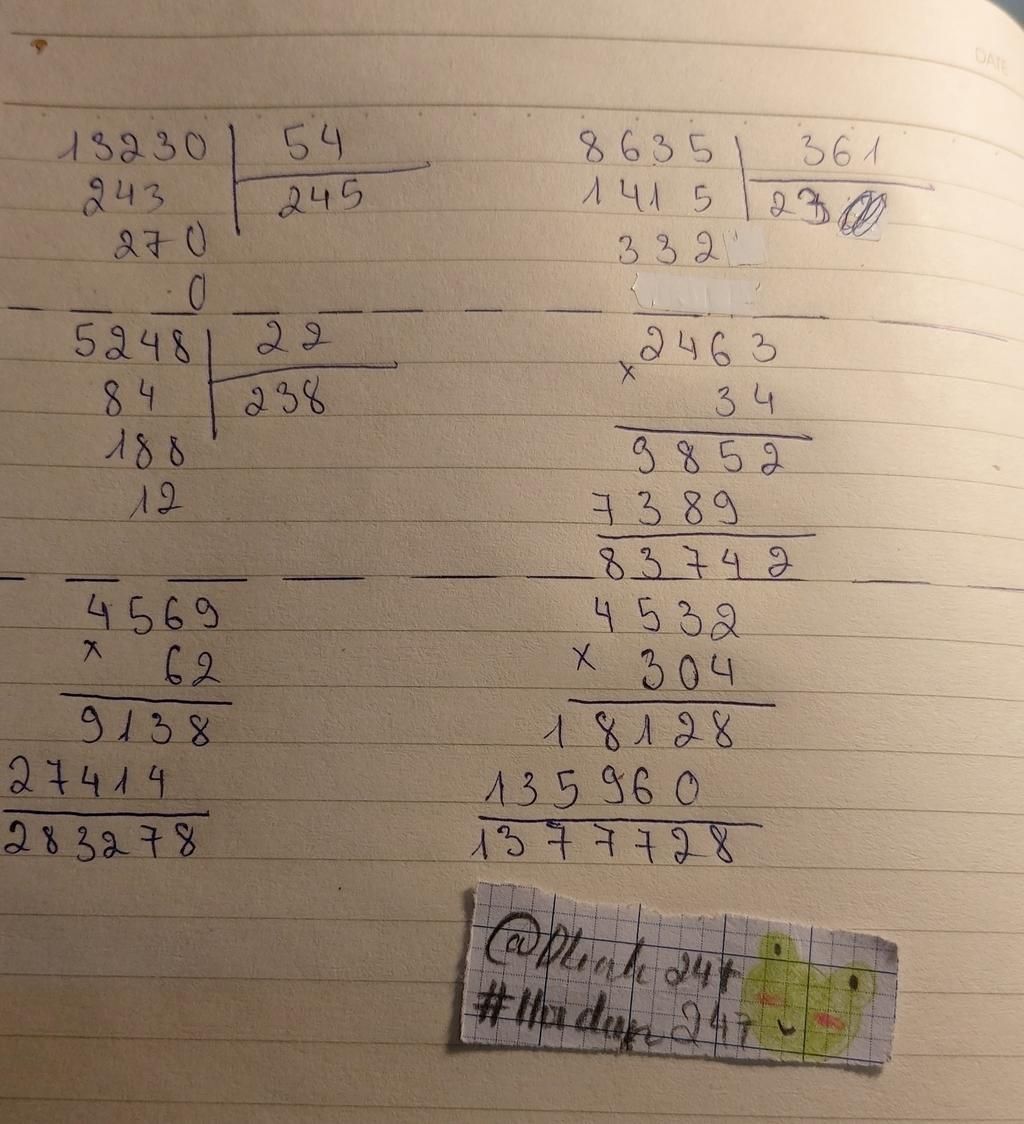 DATE
13230 54
243 245
270
0
8635 361
1415 23
332
5248 22
84 238
188
12
2463
x
34
9852
7389
83742
4569
x 62
9138
27414
283278
4532
x 304
18128
135960
1377728
247
#Hoidap 247